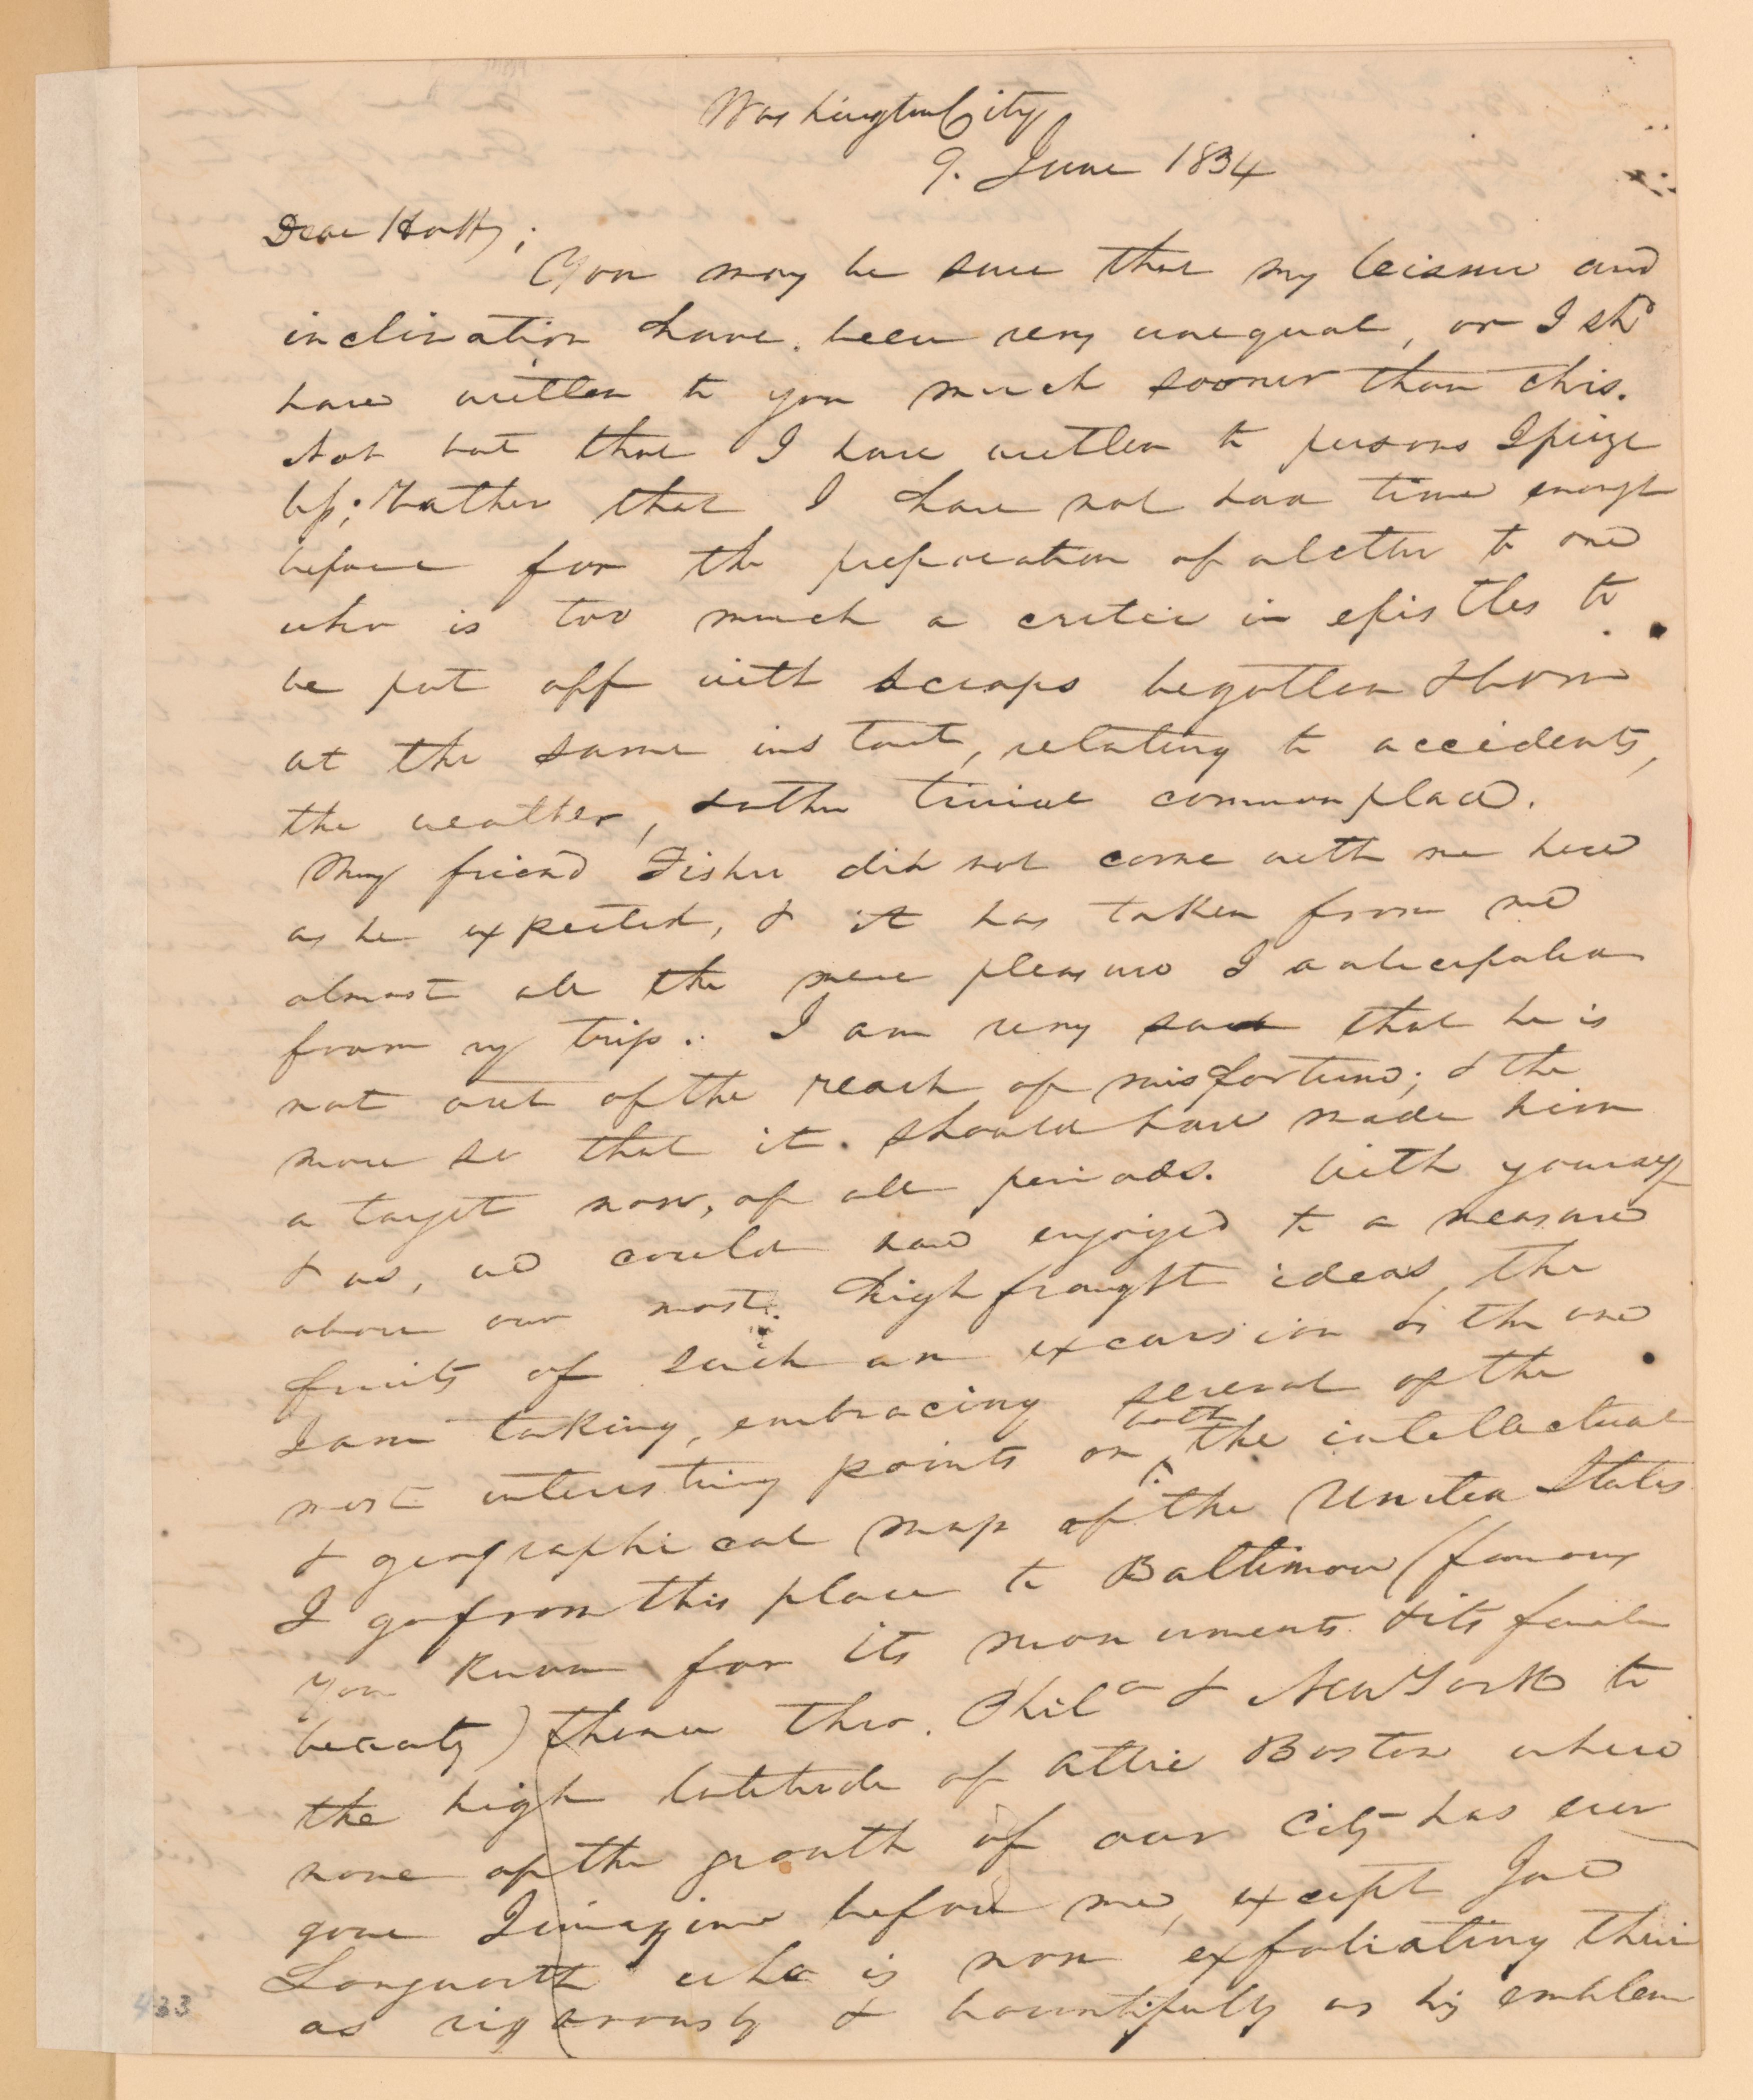 Washington City
9. June 1834
Dear Hatty;
You may be sure that my leisure and
inclination have been very unequal, or I shd
have written to you much sooner than this.
Not but that I have written to persons I prize
less; rather that I have not had time enough
before for the preparation of a letter to one
who is too much a critic in epistles to
be put off with scraps begotten & born
at the same instant, relating to accidents,
the weather, & other trivial common place.
My friend Fisher did not come with me here
as he expected, & it has taken from me
almost all the mere pleasure I anticipated
from my trip. I am very sad that he is
not out of the reach of misfortune; & the
more so that it should have made him
a target now, of all periods. With yourself
& us, we could have enjoyed to a measure
above our most high fraught ideas, the
fruits of such an excursion as the one
I am taking, embracing several of the
most interesting points on both the intellectual
& geographical map of the United States
I go from this place to Baltimore (famous
you know for its monuments & its female
beauty) thence thro. Phila & New York to
the high latitude of Attic Boston where
none of the growth of our City has ever
gone I imagine before me, except Joe
Longworth who is now exfoliating their
as vigorously & bountifully as his emblem
433